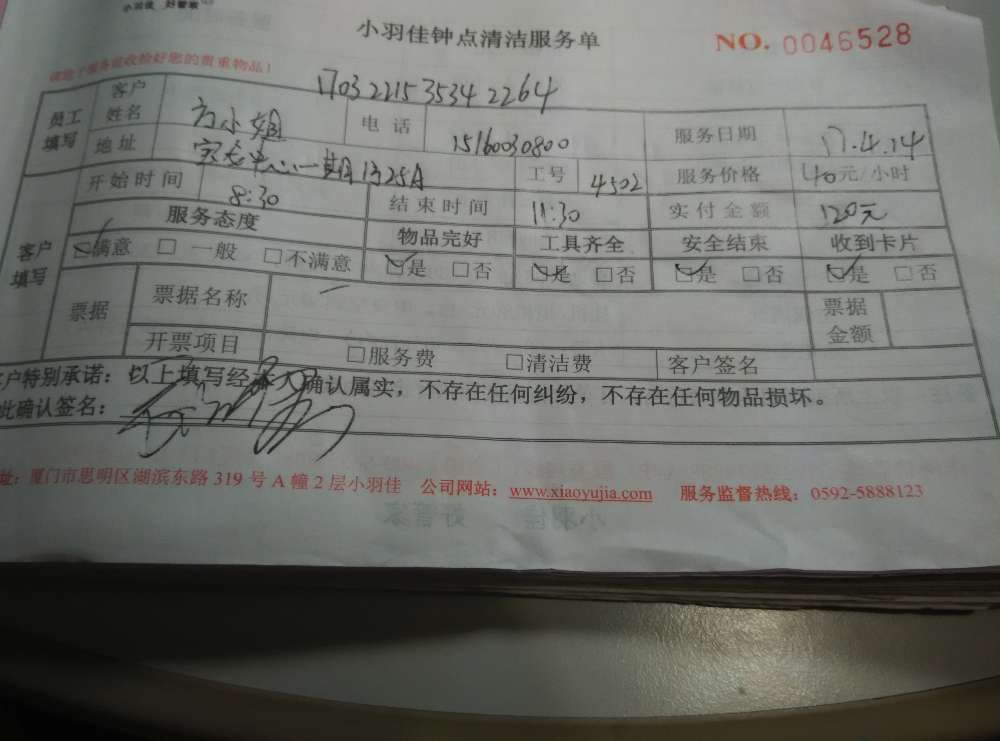 小羽佳 好管家
小羽佳钟点清洁服务单
NO. 0046528
请您于服务前收拾好您的贵重物品！
1703 2215 3534 2264
员工填写 客户姓名 方小姐 电话 15160030800 服务日期 17.4.14
地址 中心一期1325A 工号 4502 服务价格 40元/小时
客户填写 开始时间 8:30 结束时间 11:30 实付金额 120元
服务态度 物品完好 工具齐全 安全结束 收到卡片
☑满意 □一般 □不满意 ☑是 □否 ☑是 □否 ☑是 □否 ☑是 □否
票据 票据名称 票据金额
开票项目 □服务费 □清洁费 客户签名
客户特别承诺：以上填写经本人确认属实，不存在任何纠纷，不存在任何物品损坏。
此确认签名：
址：厦门市思明区湖滨东路 319 号 A 幢 2 层小羽佳 公司网站：www.xiaoyujia.com 服务监督热线：0592-5888123